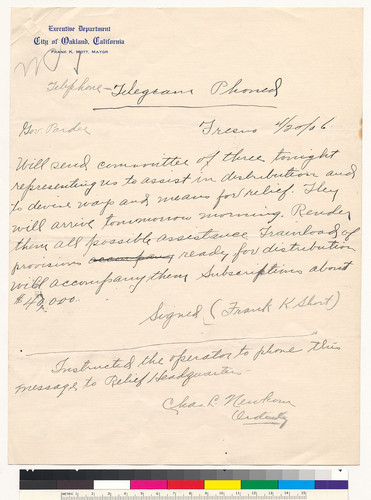 Executive Department
City of Oakland, California
FRANK K. MOTT, MAYOR
Telephone - Telegram Phoned
Gov. Pardee Fresno 4/20/06
Will send committee of three tonight
representing us to assist in distribution and
to devise ways and means for relief. They
will arrive tomorrow morning. Render
them all possible assistance Trainload of
provisions accompany ready for distribution
will accompany them Subscriptions about
Signed (Frank K Short)
Instructed the operator to phone this
message to Relief Headquarters
Chas L. 
Orderly